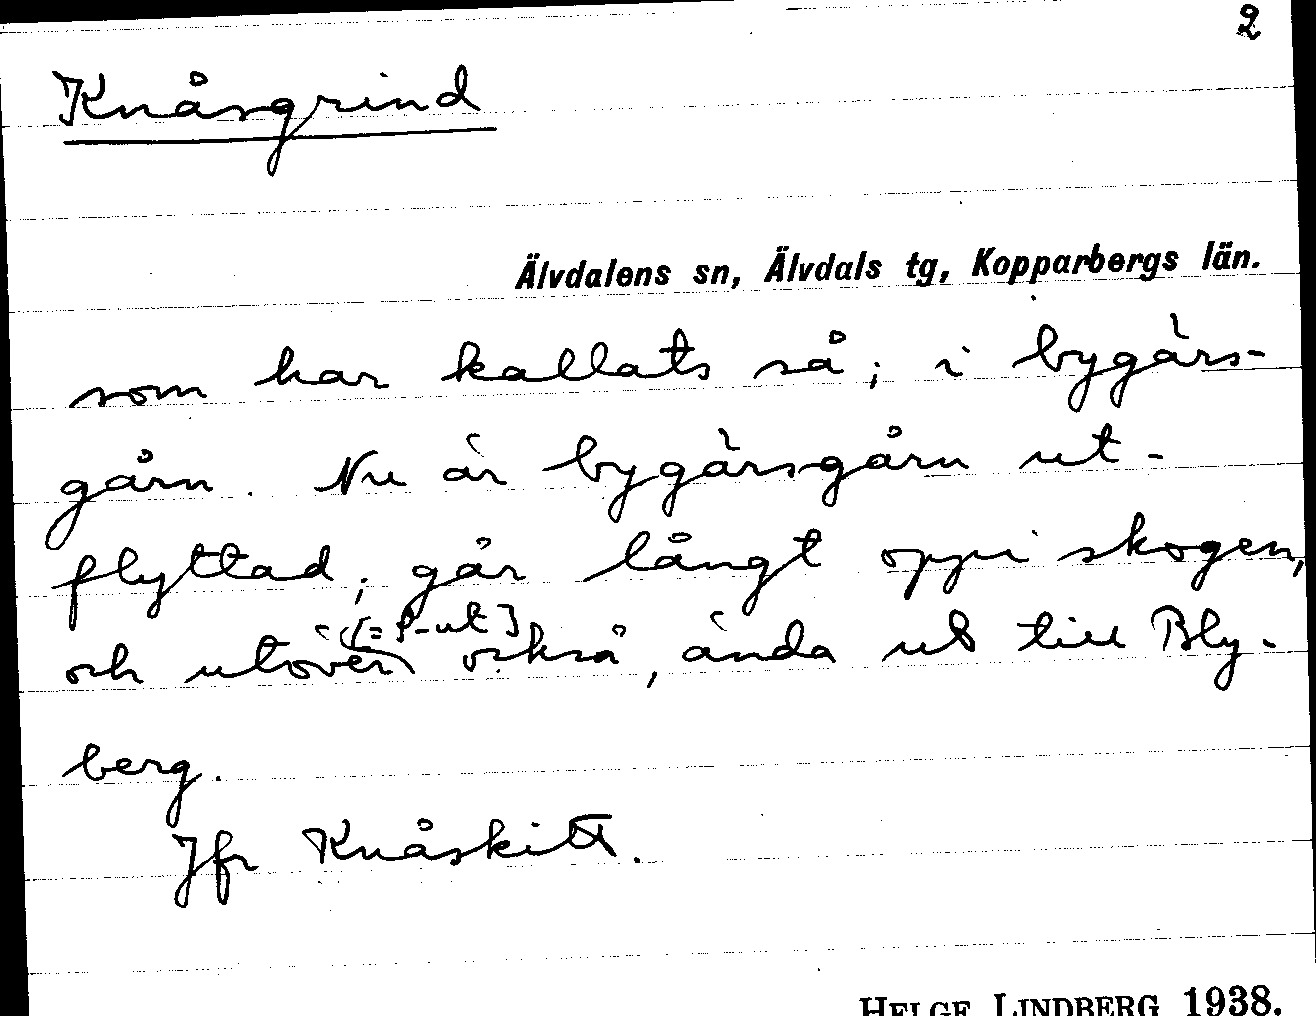 2
Knåsgrind
Älvdalens sn, Älvdals tg, Kopparbergs län.
som har kallats så; i bygärs-
gårn. Nu är bygärsgårn ut-
flyttad; går långt oppi skogen,
och utöver också, ända ut till Bly-
berg.
Jfr Knåskitt.
HELGE LINDBERG 1938.